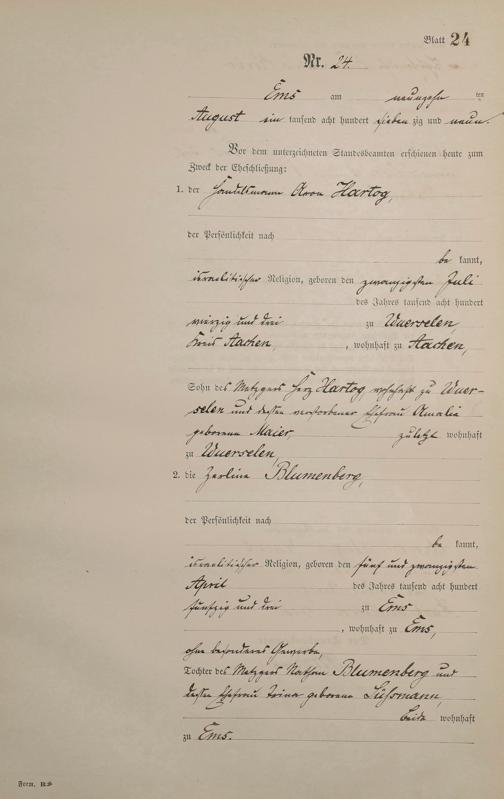 Blatt 24
Nr. 24.
Ems am neunzehn ten
August ein tausend acht hundert sieben zig und neun.
Vor dem unterzeichneten Standesbeamten erschienen heute zum
Zweck der Eheschließung:
1. der Handelsmann Aron Hartog,
der Persönlichkeit nach
be kannt,
israelitischer Religion, geboren den zwanzigsten Juli
des Jahres tausend acht hundert
vierzig und drei zu Wuerselen,
Kreis Aachen, , wohnhaft zu Aachen,
Sohn des Metzgers Herz Hartog, wohnhaft zu Wuer-
selen und dessen verstorbener Ehefrau Amalia
geborene Maier, zuletzt wohnhaft
zu Wuerselen,
2. die Zerline Blumenberg,
der Persönlichkeit nach
be kannt,
israelitischer Religion, geboren den fünf und zwanzigsten
April des Jahres tausend acht hundert
fünfzig und drei zu Ems
, wohnhaft zu Ems,
ohne besonderes Gewerbe,
Tochter des Metzgers Nathan Blumenberg und
dessen Ehefrau geborene Süssmann,
beide wohnhaft
zu Ems.
Form.